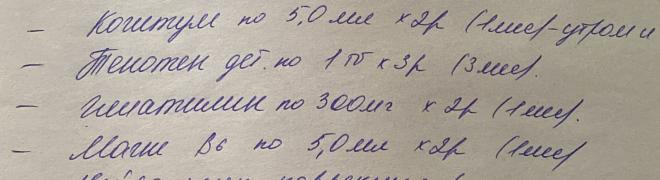 – Когитум по 5,0 мл х2р (1 мес) – утром и
– Тенотен дет. по 1 тб х 3р (3 мес).
– Глиатилин по 300мг х 2р (1 мес).
– Магне В6 по 5,0 мл х2р (1 мес)